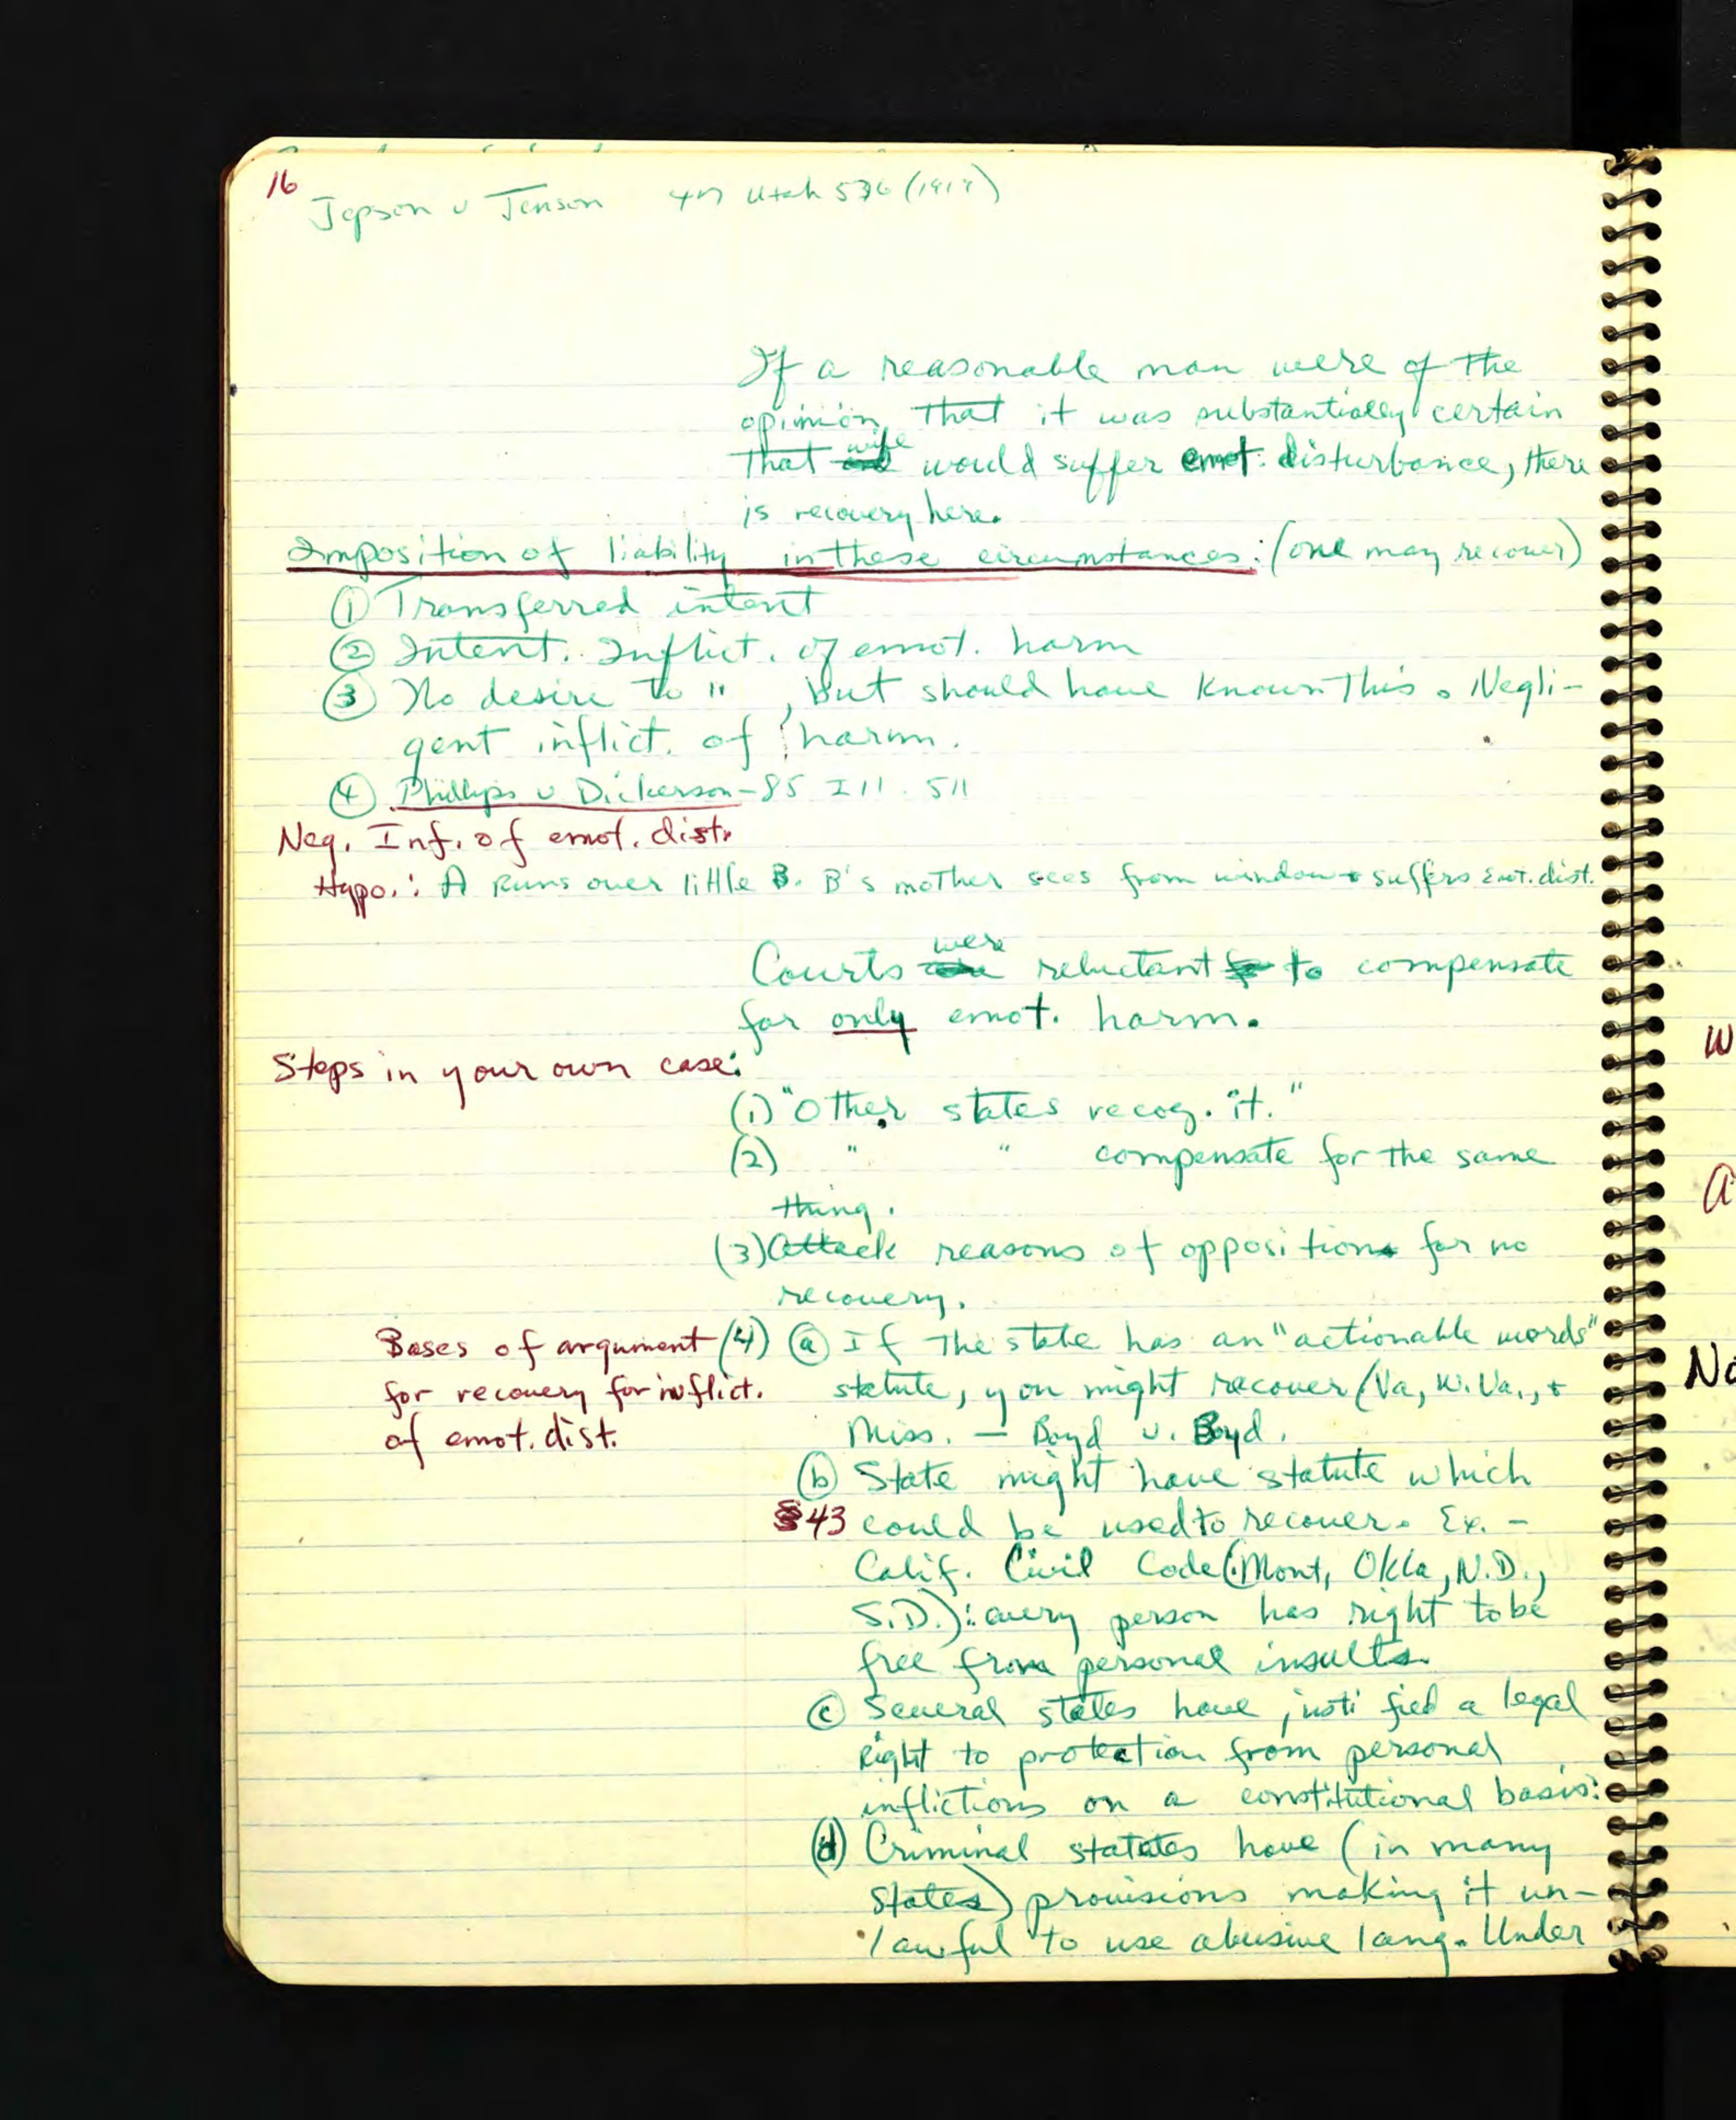 16
Jepson v Jenson 47 Utah 536 (1917)
If a reasonable man were of the
opinion, that it was substantially certain
that wife would suffer emot. disturbance, there
is recovery here.
Imposition of liability in these circumstances: (one may recover)
① Transferred intent
② Intent. Inflict. of emot. harm
③ No desire to ", but should have known this. Negli-
gent inflict. of harm.
④ Phillips v Dickerson - 85 Ill. 511
Neg. Inf. of emot. distr.
Hypo.: A Runs over little B. B's mother sees from window + suffers Emot. dist.
Courts were reluctant to compensate
for only emot. harm.
Steps in your own case:
(1) "Other states recog. it."
(2) " " compensate for the same
thing.
(3) Attack reasons of opposition for no
recovery.
Bases of argument (4) ⓐ If the state has an "actionable words"
for recovery for inflict. statute, you might recover (Va, W. Va., +
of emot. dist. Miss. — Boyd v. Boyd.
ⓑ State might have statute which
§43 could be used to recover. Ex. -
Calif. Civil Code (Mont, Okla, N.D.,
S.D.): every person has right to be
free from personal insults.
ⓒ Several states have justified a legal
right to protection from personal
inflictions on a constitutional basis:
(d) Criminal statutes have (in many
states) provisions making it un-
lawful to use abusive lang. Under
W
a
No